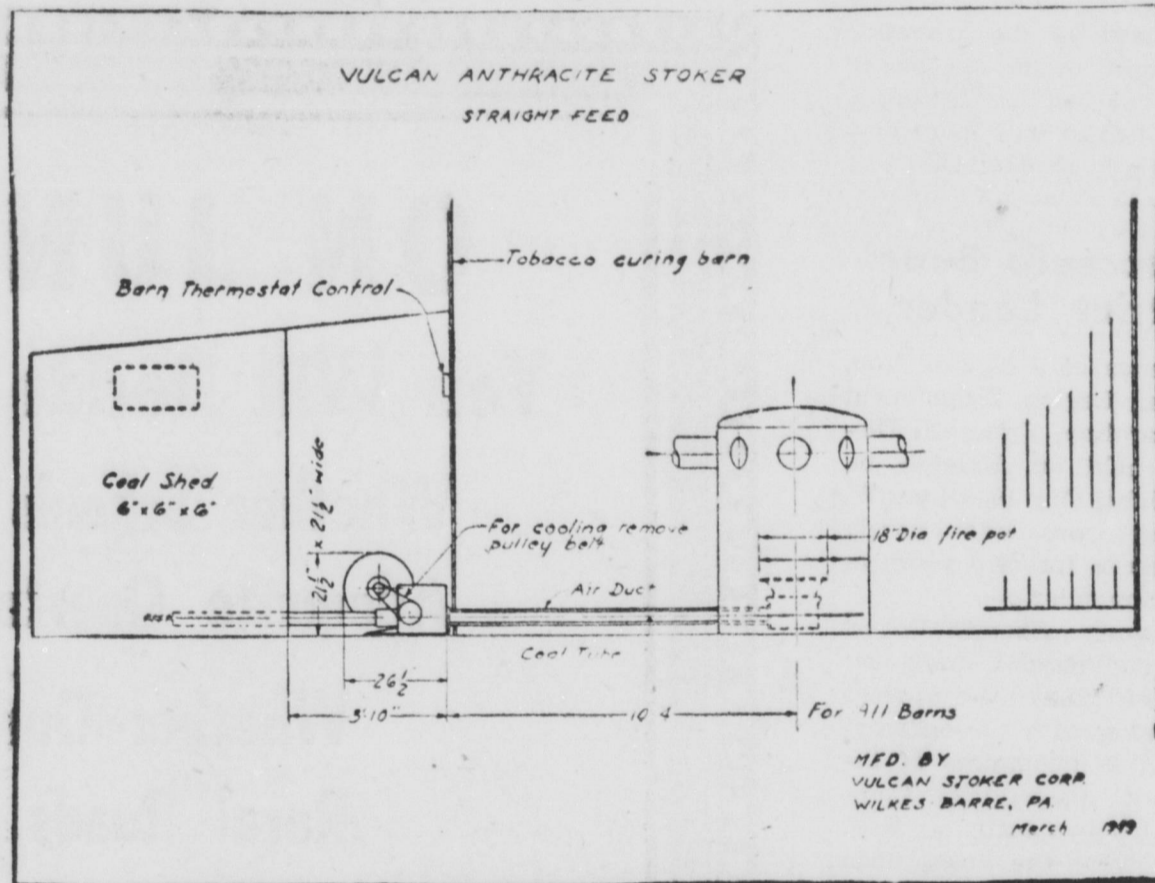 VULCAN ANTHRACITE STOKER
STRAIGHT FEED
Tobacco curing barn
Barn Thermostat Control
Coal Shed
6" x 6" x 6"
21½" x 21½" wide
For cooling remove
pulley belt
18" Dia fire pot
Air Duct
Coal Tube
26½"
10'4
For All Barns
MFD. BY
VULCAN STOKER CORP.
WILKES BARRE, PA.
March 1949